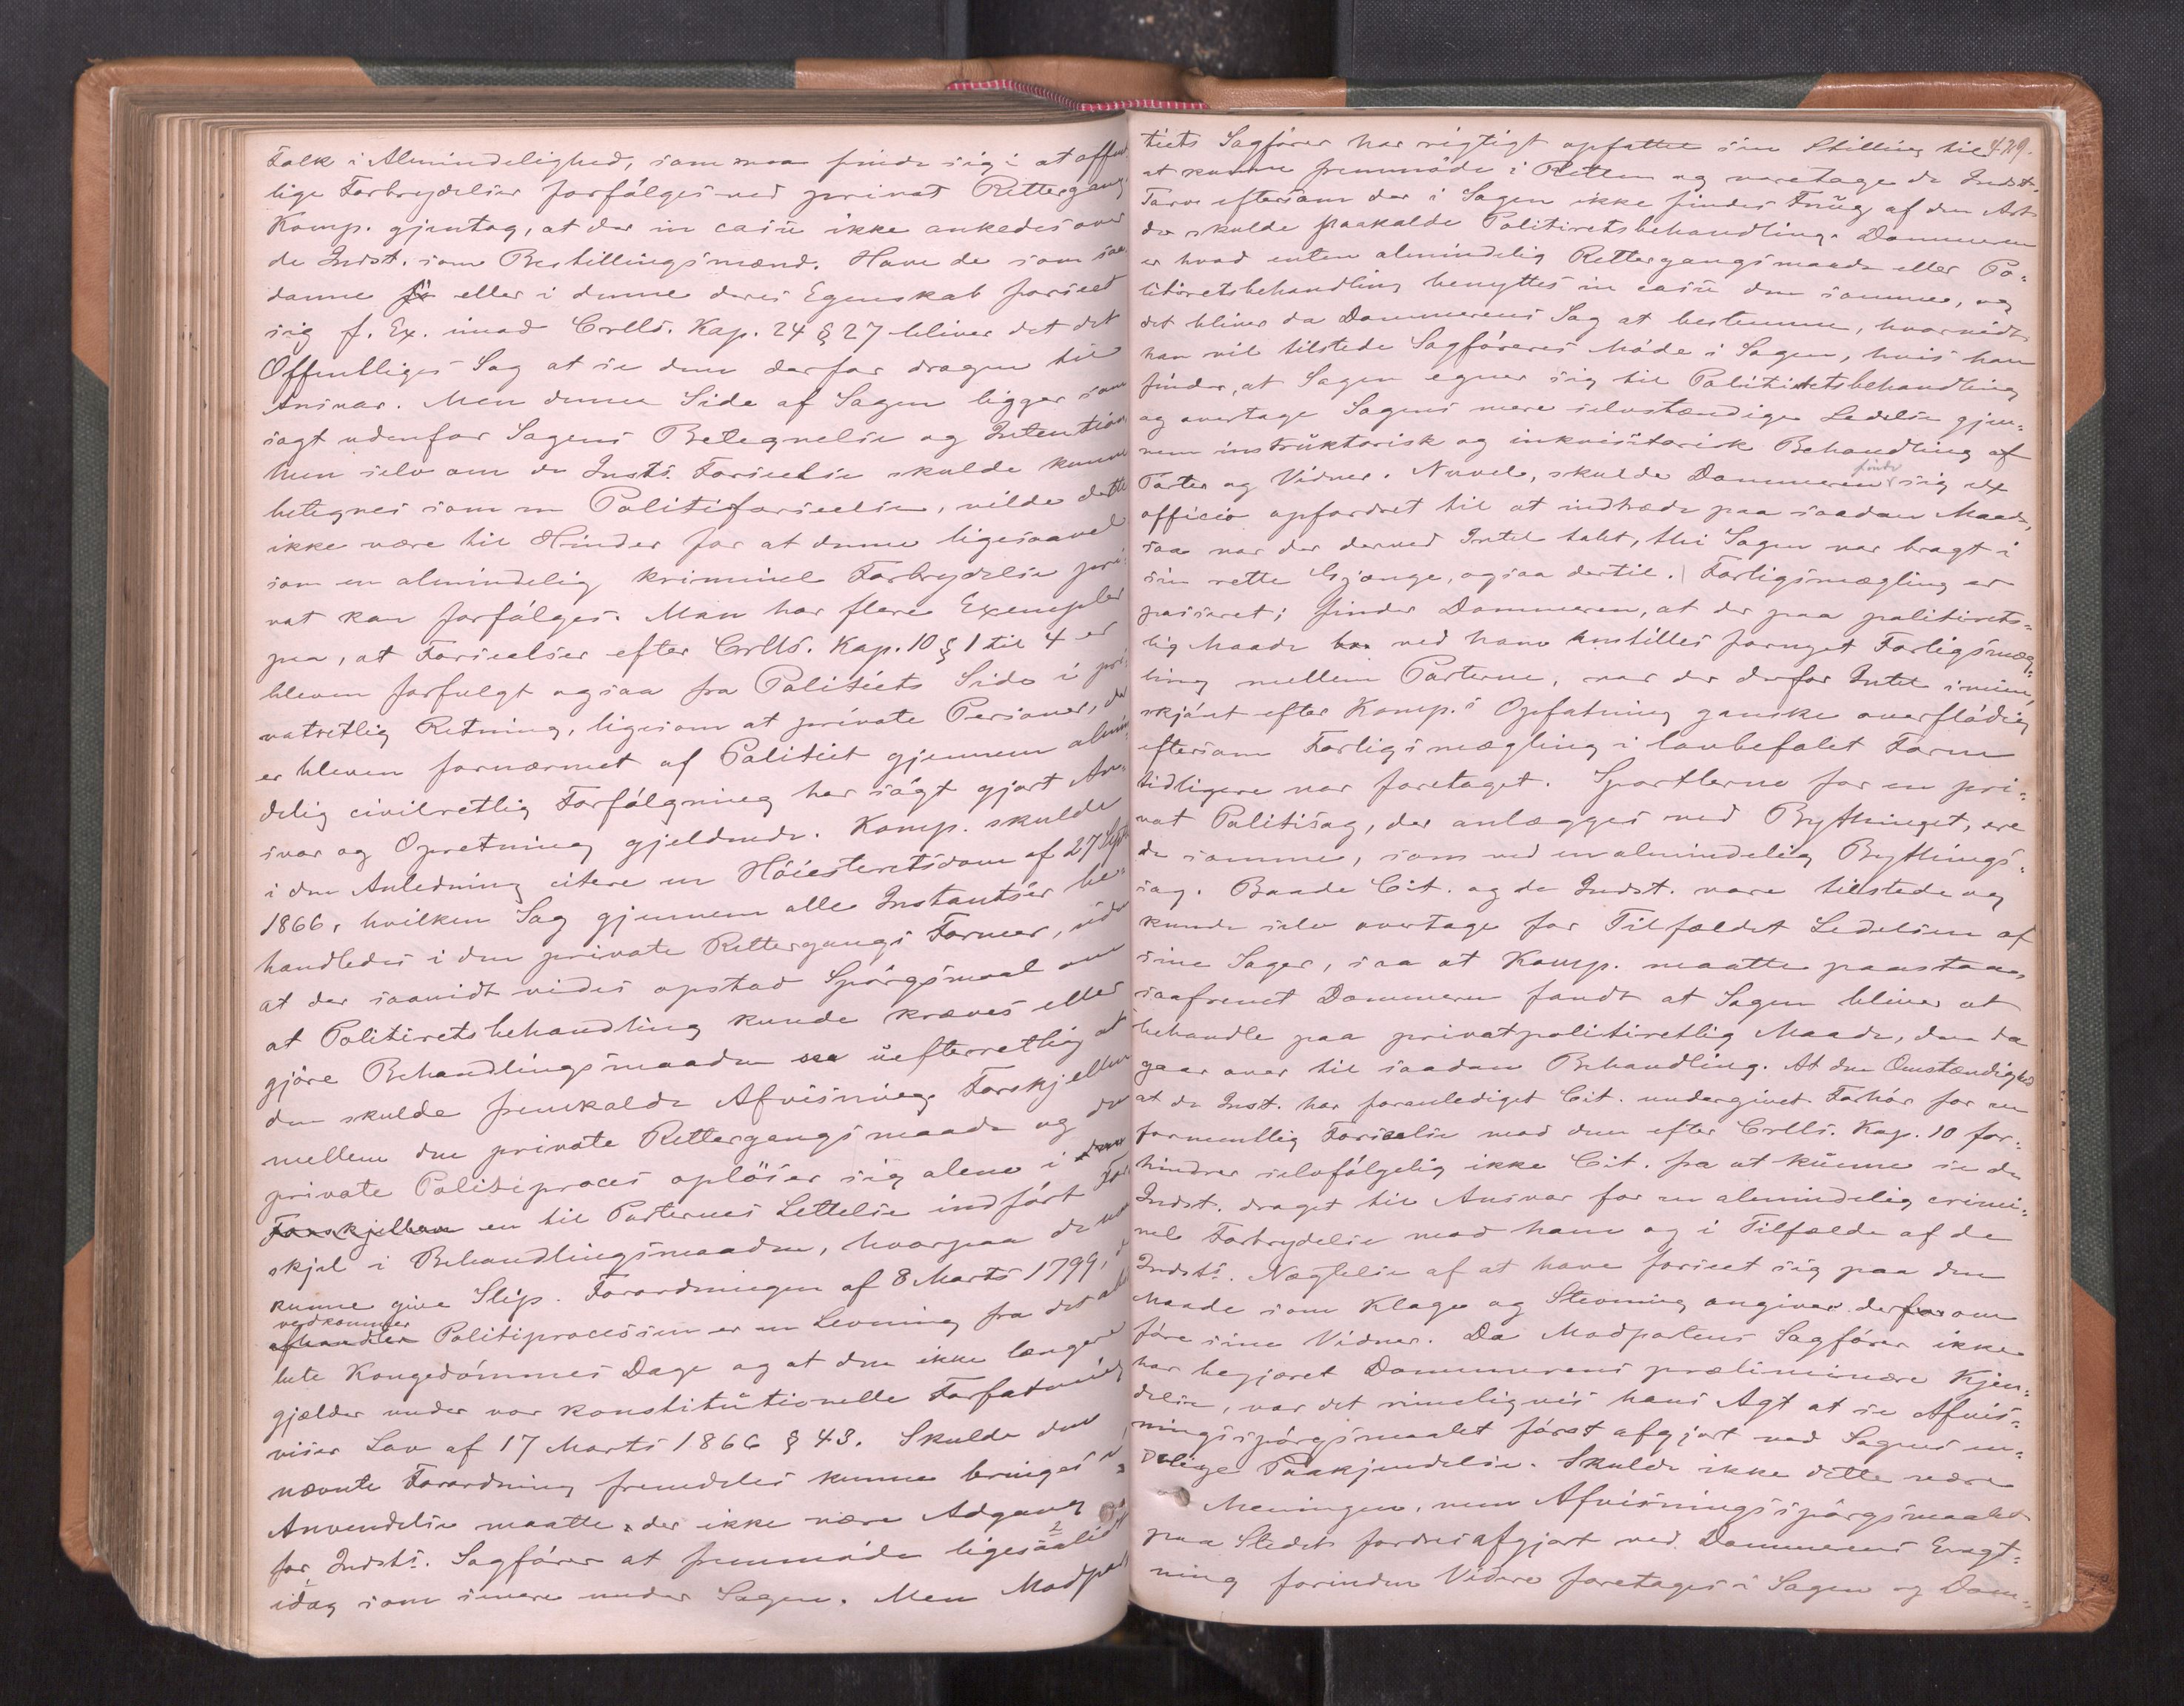 Folk i Almindelighed, som maa finde sig i at offent
lige Forbrydelser forfølges ved privat Rettergang.
Komp. gjentog, at der in casu ikke ankedes over
de Indst. som Bestillingsmænd. Have de som saa
danne eller i denne deres Egenskab forseet
sig f. Ex. imod Crlls. Kap. 24 § 27 bliver det det
Offentliges Sag at se dem derfor dragen til
Ansvar. Men denne Side af Sagen ligger som
sagt udenfor Sagens Betegnelse og Intention,
Men selv om de Insts. Forseelse skulde kunne
betegnes som en Politiforseelse, vilde dette
ikke være til Hinder for at denne ligesaavel
som en almindelig kriminel Forbrydelse pri¬
vat kan forfølges. Man har flere Exempler
paa, at Forseelser efter Crlls. Kap. 10 § 1 til 4 er
bleven forfulgt ogsaa fra Politiets Side i pri¬
vatretlig Retning, ligesom at private Personer, der
er bleven fornærmet af Politiet gjennem almin¬
delig civilretlig Forfølgning har søgt gjort An¬
svar og Opretning gjeldende. Komp. skulde
i den Anledning citere en Høiesteretsdom af 27 Sept
1866, hvilken Sag gjennem alle Instantser be¬
handledes i den private Rettergangs Former, uden
at der saavidt vides opstod Spørgsmaal om
at Politiretsbehandling kunde kræves eller
gjøre Behandlingsmaaden uefterretlig at
den skulde fremkalde Afvisning. Forskjellen
mellem den private Rettergangsmaade og den
private Politiproces opløser sig alene i
Forskjellen en til Parternes Lettelse indført For
skjel i Behandlingsmaaden, hvorpaa de maa
kunne give Slip. Forordningen af 8 Marts 1799,
vedkommer
afhandler Politiprocessen er en Levning fra det
lute Kongedømmes Dage og at den ikke længere
gjælder under vor konstitutionelle Forfatning
viser Lov af 17 Marts 1866 § 43. Skulde den
nævnte Forordning fremdeles kunne bringes i
Anvendelse maatte der ikke være Adgang
for Indsts. Sagfører at fremmøde ligesaalidt
idag som senere under Sagen. Men Modpar

429.
tiets Sagfører har rigtigt opfattet sin Stilling til
at kunne fremmøde i Retten og varetage de Indst.
Tarv eftersom der i Sagen ikke findes Fnug af den Art
der skulde paakalde Politiretsbehandling. Dommeren
er hvad enten almindelig Rettergangsmaade eller Po¬
litiretsbehandling benyttes in casu den samme, og
det bliver da Dommerens Sag at bestemme, hvorvidt
han vil tilstede Sagføreres Møde i Sagen, hvis han
finder, at Sagen egner sig til Politiretsbehandling
og overtage Sagens mere selvstændige Ledelse gjen¬
nem instruktorisk og inkvisitorisk Behandling af
Parter og Vidner. Nuvel, skulde Dommeren finde sig ex
officio opfordret til at indtræde paa saadan Maade,
saa var der derved Intet tabt, thi Sagen var bragt i
sin rette Gjænge, ogsaa dertil. Forligsmægling er
passeret; finder Dommeren, at der paa politirets¬
lig Maade bør ved ham anstilles fornyet Forligsmæg¬
ling mellem Parterne, var der derfor Intet imien,
skjønt efter Komp.s Opfatning ganske overflødig
eftersom Forligsmægling i lovbefalet Form
tidligere var foretaget. Sportlerne for en pri¬
vat Politisag, der anlægges ved Bythinget, ere
de samme, som ved en almindelig Bythings¬
sag. Baade Cit. og de Indst. vare tilstede og
kunde selv overtage for Tilfældet Ledelsen af
sine Sager, saa at Komp. maatte paastaa,
saafremt Dommeren fandt at Sagen bliver at
behandle paa privatpolitiretlig Maade, den da
gaar over til saadan Behandling. At den Omstændighed
at de Inst. har foranlediget Cit. undergivet Forhør for en
formentlig Forseelse mod dem efter Crlls. Kap. 10 for¬
hindrer selvfølgelig ikke Cit. fra at kunne se de
Indst. draget til Ansvar for en almindelig crimi¬
nel Forbrydelse mod ham og i Tilfælde af de
Indsts. Nægtelse af at have forseet sig paa den
Maade som Klage og Stevning angiver derfor om
føre sine Vidner. Da Modpartens Sagfører ikke
har begjæret Dommerens præliminære Kjen¬
delse, var det rimeligvis hans Agt at se Afvis¬
ningsspørgsmaalet først afgjort ved Sagens en¬
delige Paakjendelse. Skulde ikke dette være
Meningen, men Afvisningsspørgsmaalet
paa Stedet fordres afgjort ved Dommerens Eragt¬
ning forinden Videre foretages i Sagen og Dom¬